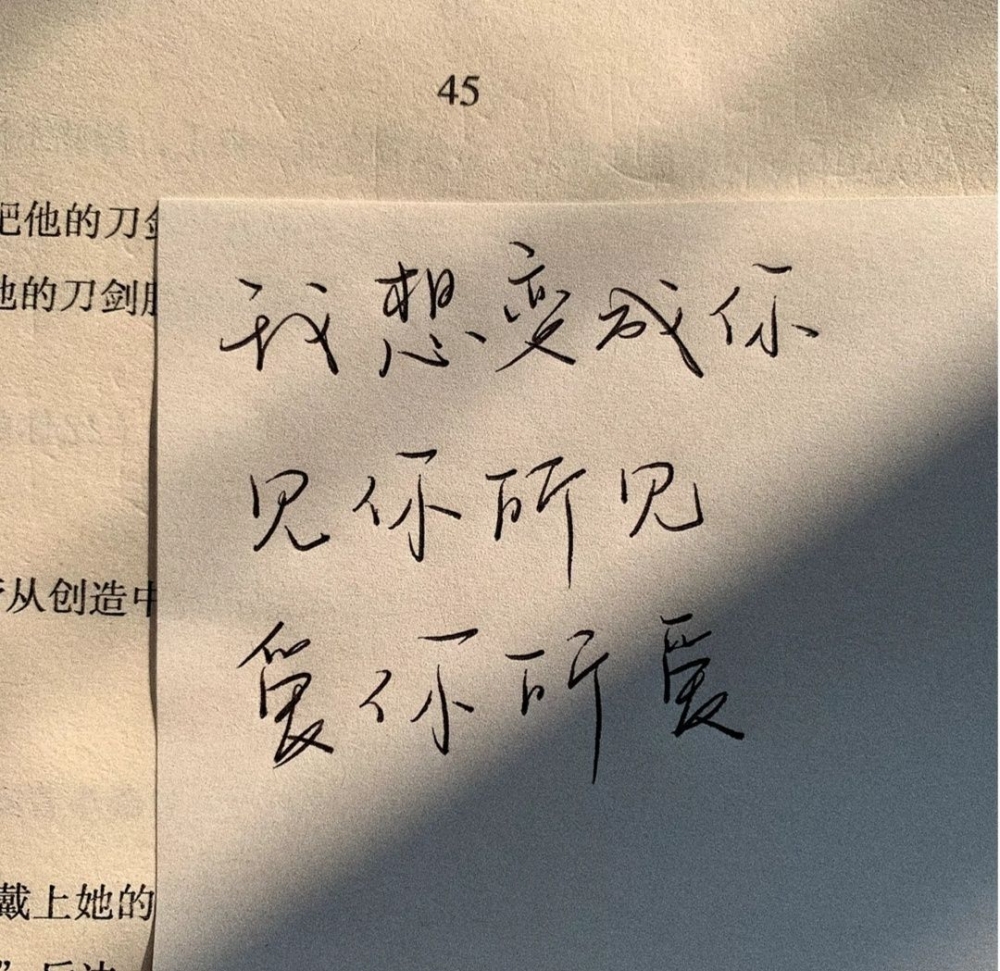 45
把他的刀
他的刀剑
我想变成你
见你所见
从创造中
爱你所爱
戴上她的